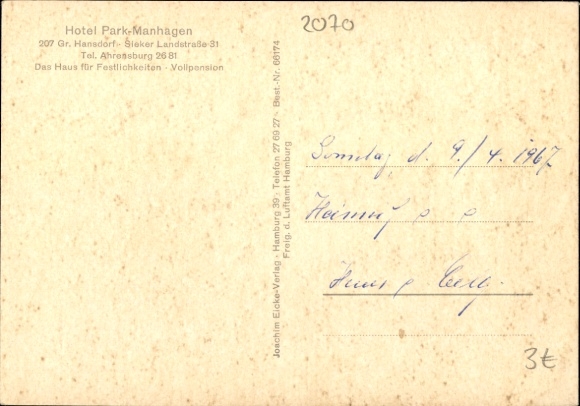 2070
Hotel Park-Manhagen
207 Gr. Hansdorf · Sieker Landstraße 31
Tel. Ahrensburg 26 81
Das Haus für Festlichkeiten · Vollpension
Joachim Eicke-Verlag · Hamburg 39 · Telefon 27 69 27 · Best.-Nr. 66174
Freig. d. Luftamt Hamburg
Sonntag d. 9./4. 1967
3€